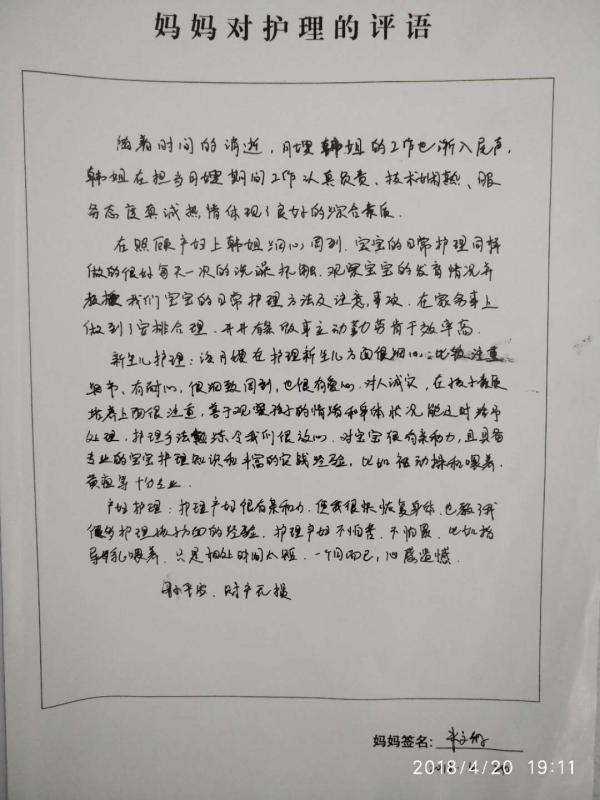 妈妈对护理的评语
随着时间的消逝，月嫂韩姐的工作也渐入尾声，
韩姐在担当月嫂期间工作认真负责、技术娴熟、服
务态度真诚热情体现了良好的综合素质。
在照顾产妇上韩姐细心周到，宝宝的日常护理同样
做的很好每天一次的洗澡抚触，观察宝宝的发育情况并
教授我们宝宝的日常护理方法及注意事项。在家务事上
做到了安排合理，井井有条做事主动勤劳肯干效率高。
新生儿护理：该月嫂在护理新生儿方面很细心，比较注重
细节、有耐心，很细致周到，也很有爱心，对人诚实，在孩子素质
培养上面很注重，善于观察孩子的情绪和身体状况能及时给予
处理，护理手法熟练令我们很放心。对宝宝很有亲和力，且具备
专业的宝宝护理知识和丰富的实践经验，比如被动操和喂养、
黄疸等十分专业
产妇护理：护理产妇很有亲和力，使我很快恢复身体，也教了我
很多护理孩子方面的经验。护理产妇不怕苦、不怕累，比如指
导母乳喂养，只是相处时间太短，一个月而已，心感遗憾。
财产无损
妈妈签名：
2018/4/20 19:11